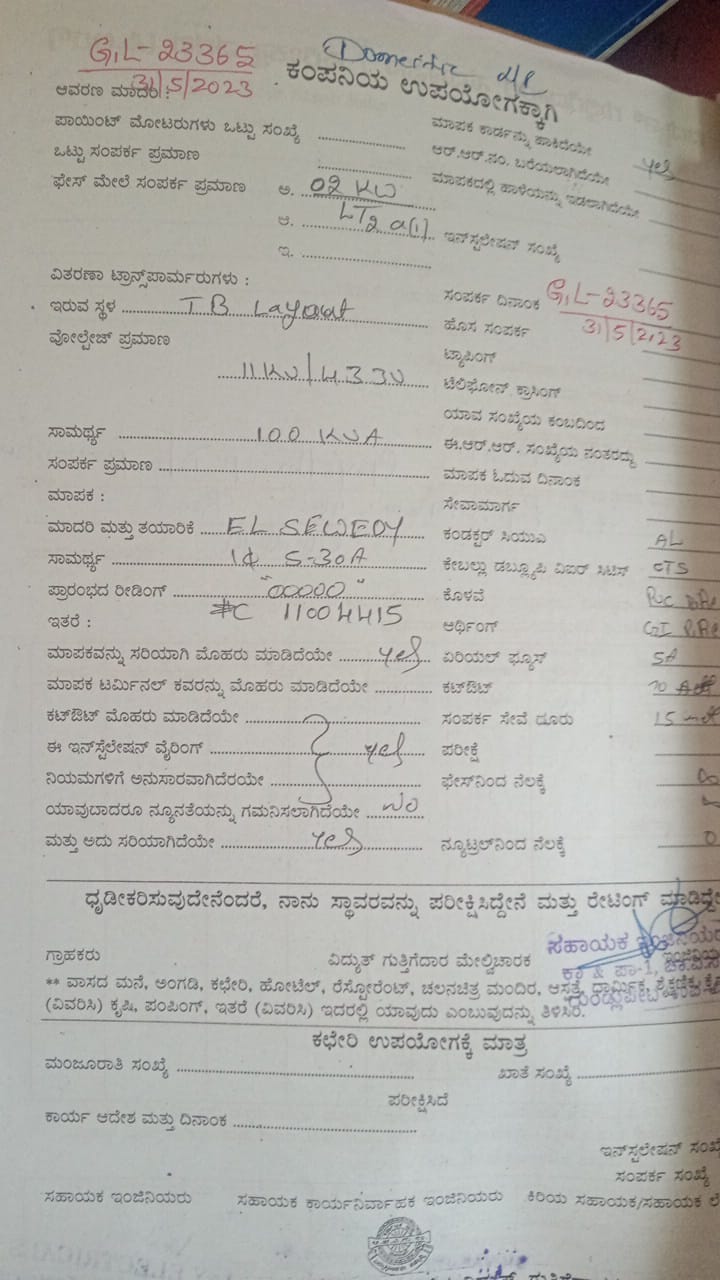 G,L-23365
31/5/2023
Domestic
ಕಂಪನಿಯ ಉಪಯೋಗಕ್ಕಾಗಿ
ಆವರಣ ಮಾದರಿ :
ಪಾಯಿಂಟ್ ಮೋಟರುಗಳು ಒಟ್ಟು ಸಂಖ್ಯೆ
ಮಾಪಕ ಕಾರ್ಡನ್ನು ಹಾಕಿದೆಯೇ
ಒಟ್ಟು ಸಂಪರ್ಕ ಪ್ರಮಾಣ
ಆರ್.ಆರ್.ನಂ. ಬರೆಯಲಾಗಿದೆಯೇ yes
ಫೇಸ್ ಮೇಲೆ ಸಂಪರ್ಕ ಪ್ರಮಾಣ ಅ. 02 KW
ಮಾಪಕದಲ್ಲಿ ಹಾಳೆಯನ್ನು ಇಡಲಾಗಿದೆಯೇ
ಆ. LT2 a(i)
ಇನ್‌ಸ್ಟಲೇಷನ್ ಸಂಖ್ಯೆ
ಇ.
ವಿತರಣಾ ಟ್ರಾನ್ಸ್‌ಪಾರ್ಮರುಗಳು :
ಸಂಪರ್ಕ ದಿನಾಂಕ G,L-23365
31/5/2023
ಇರುವ ಸ್ಥಳ TB Layout
ಹೊಸ ಸಂಪರ್ಕ
ವೋಲ್ಟೇಜ್ ಪ್ರಮಾಣ
ಟ್ಯಾಪಿಂಗ್
11KV/433V
ಟೆಲಿಫೋನ್ ಕ್ರಾಸಿಂಗ್
ಯಾವ ಸಂಖ್ಯೆಯ ಕಂಬದಿಂದ
ಸಾಮರ್ಥ್ಯ 100 KVA
ಈ.ಆರ್.ಆರ್. ಸಂಖ್ಯೆಯ ನಂತರದ್ದು
ಸಂಪರ್ಕ ಪ್ರಮಾಣ
ಮಾಪಕ ಓದುವ ದಿನಾಂಕ
ಮಾಪಕ :
ಸೇವಾಮಾರ್ಗ
ಮಾದರಿ ಮತ್ತು ತಯಾರಿಕೆ EL SEWEDY
ಕಂಡಕ್ಟರ್ ಸಿಯುಎ AL
ಸಾಮರ್ಥ್ಯ 1Φ 5-30A
ಕೇಬಲ್ಲು ಡಬ್ಲ್ಯೂಪಿ ವಿಐರ್ ಸಿಟಿಸ್ CTS
ಪ್ರಾರಂಭದ ರೀಡಿಂಗ್ "00000"
ಕೊಳವೆ
ಇತರೆ : 11004415
ಆರ್ಥಿಂಗ್ GI
ಮಾಪಕವನ್ನು ಸರಿಯಾಗಿ ಮೊಹರು ಮಾಡಿದೆಯೇ yes
ಏರಿಯಲ್ ಫ್ಯೂಸ್ 5A
ಮಾಪಕ ಟರ್ಮಿನಲ್ ಕವರನ್ನು ಮೊಹರು ಮಾಡಿದೆಯೇ
ಕಟ್‌ಔಟ್
ಕಟ್‌ಔಟ್ ಮೊಹರು ಮಾಡಿದೆಯೇ
ಸಂಪರ್ಕ ಸೇವೆ ದೂರು 15
ಈ ಇನ್‌ಸ್ಟೆಲೇಷನ್ ವೈರಿಂಗ್ yes
ಪರೀಕ್ಷೆ
ನಿಯಮಗಳಿಗೆ ಅನುಸಾರವಾಗಿದೆರಯೇ
ಫೇಸ್‌ನಿಂದ ನೆಲಕ್ಕೆ
ಯಾವುಬಾದರೂ ನ್ಯೂನತೆಯನ್ನು ಗಮನಿಸಲಾಗಿದೆಯೇ No
ಮತ್ತು ಅದು ಸರಿಯಾಗಿದೆಯೇ Yes
ನ್ಯೂಟ್ರಲ್‌ನಿಂದ ನೆಲಕ್ಕೆ
ಧೃಡೀಕರಿಸುವುದೇನೆಂದರೆ, ನಾನು ಸ್ಥಾವರವನ್ನು ಪರೀಕ್ಷಿಸಿದ್ದೇನೆ ಮತ್ತು ರೇಟಿಂಗ್ ಮಾಡಿದ್ದೇ
ಸಹಾಯಕ
ಗ್ರಾಹಕರು ವಿದ್ಯುತ್ ಗುತ್ತಿಗೆದಾರ ಮೇಲ್ವಿಚಾರಕ
** ವಾಸದ ಮನೆ, ಅಂಗಡಿ, ಕಛೇರಿ, ಹೋಟೆಲ್, ರೆಸ್ಟೋರೆಂಟ್, ಚಲನಚಿತ್ರ ಮಂದಿರ, ಆಸ್ಪತ್ರೆ, ಧಾರ್ಮಿಕ, ಶೈಕ್ಷಣಿಕ,
(ವಿವರಿಸಿ) ಕೃಷಿ, ಪಂಪಿಂಗ್, ಇತರೆ (ವಿವರಿಸಿ) ಇದರಲ್ಲಿ ಯಾವುದು ಎಂಬುವುದನ್ನು ತಿಳಿಸಿರಿ.
ಕಛೇರಿ ಉಪಯೋಗಕ್ಕೆ ಮಾತ್ರ
ಮಂಜೂರಾತಿ ಸಂಖ್ಯೆ
ಖಾತೆ ಸಂಖ್ಯೆ
ಪರೀಕ್ಷಿಸಿದೆ
ಕಾರ್ಯ ಆದೇಶ ಮತ್ತು ದಿನಾಂಕ
ಇನ್‌ಸ್ಟಲೇಷನ್ ಸಂಖ್ಯೆ
ಸಂಪರ್ಕ ಸಂಖ್ಯೆ
ಸಹಾಯಕ ಇಂಜಿನಿಯರು ಸಹಾಯಕ ಕಾರ್ಯನಿರ್ವಾಹಕ ಇಂಜಿನಿಯರು ಕಿರಿಯ ಸಹಾಯಕ/ಸಹಾಯಕ